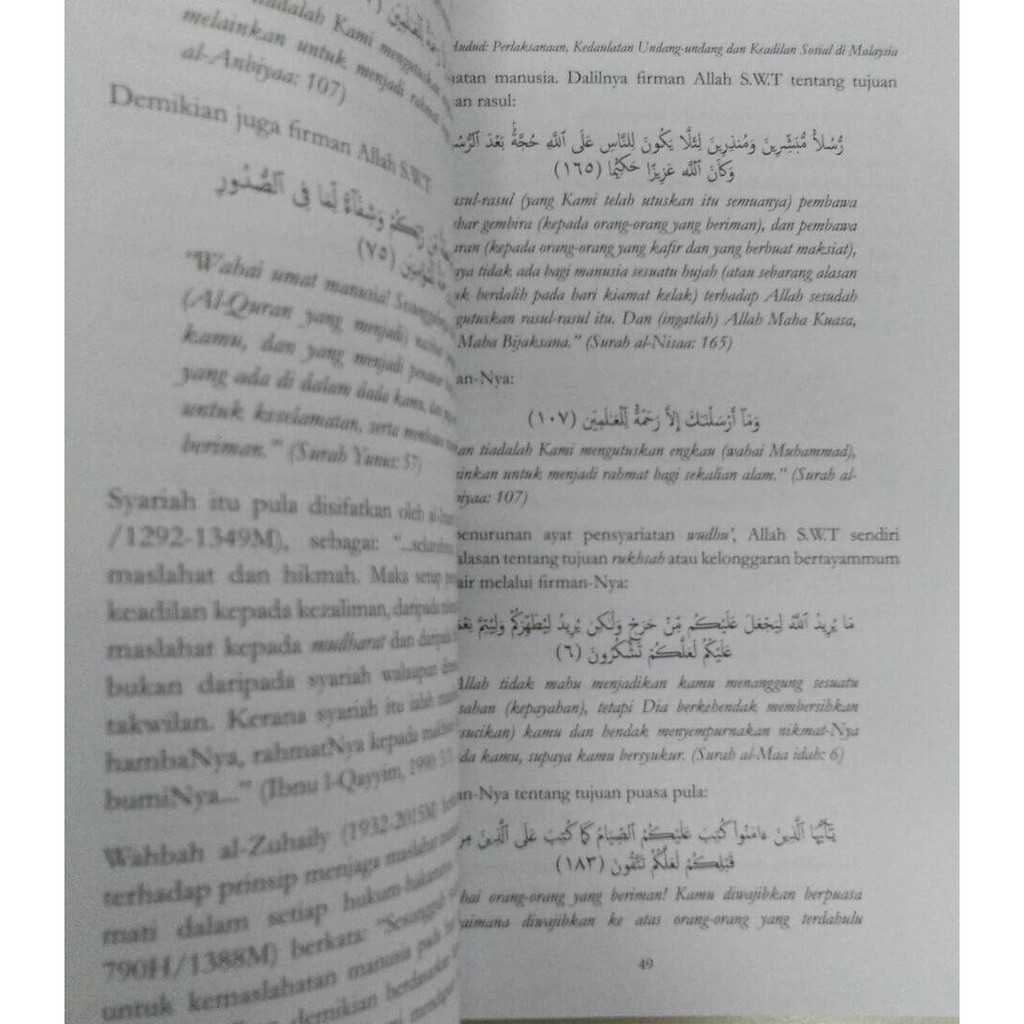 tiadalah Kami mengutuskan
melainkan untuk menjadi rahmat
al-Anbiyaa: 107)
Demikian juga firman Allah S.W.T:
وَشِفَآءٌ لِّمَا فِى ٱلصُّدُورِ
(٧٥)
"Wahai umat manusia! Sesungguhnya
(Al-Quran yang menjadi)
kamu, dan yang menjadi penawar
yang ada di dalam dada kamu, dan
untuk keselamatan, serta membawa
beriman." (Surah Yunus: 57)
Syariah itu pula disifatkan oleh
/1292-1349M), sebagai: "...
maslahat dan hikmah. Maka setiap
keadilan kepada kezaliman, daripada
maslahat kepada mudharat dan daripada
bukan daripada syariah walaupun
takwilan. Kerana syariah itu ialah
hambaNya, rahmatNya kepada
bumiNya..." (Ibnu l-Qayyim, 1990:
Wahbah al-Zuhaily (1932-2015M)
terhadap prinsip menjaga maslahat
mati dalam setiap hukum-hakam
790H/1388M) berkata: "Sesungguh
untuk kemaslahatan manusia pada
demikian berdasarkan
Hudud: Perlaksanaan, Kedaulatan Undang-undang dan Keadilan Sosial di Malaysia
atan manusia. Dalilnya firman Allah S.W.T tentang tujuan
an rasul:
رُّسُلًا مُّبَشِّرِينَ وَمُنذِرِينَ لِئَلَّا يَكُونَ لِلنَّاسِ عَلَى ٱللَّهِ حُجَّةٌۢ بَعْدَ ٱلرُّسُ
وَكَانَ ٱللَّهُ عَزِيزًا حَكِيمًا (١٦٥)
asul-rasul (yang Kami telah utuskan itu semuanya) pembawa
bar gembira (kepada orang-orang yang beriman), dan pembawa
ran (kepada orang-orang yang kafir dan yang berbuat maksiat),
ya tidak ada bagi manusia sesuatu hujah (atau sebarang alasan
k berdalih pada hari kiamat kelak) terhadap Allah sesudah
gutuskan rasul-rasul itu. Dan (ingatlah) Allah Maha Kuasa,
Maha Bijaksana." (Surah al-Nisaa: 165)
an-Nya:
وَمَآ أَرْسَلْنَٰكَ إِلَّا رَحْمَةً لِّلْعَٰلَمِينَ (١٠٧)
an tiadalah Kami mengutuskan engkau (wahai Muhammad),
inkan untuk menjadi rahmat bagi sekalian alam." (Surah al-
iyaa: 107)
penurunan ayat pensyariatan wudhu', Allah S.W.T sendiri
alasan tentang tujuan rukhsah atau kelonggaran bertayammum
air melalui firman-Nya:
مَا يُرِيدُ ٱللَّهُ لِيَجْعَلَ عَلَيْكُم مِّنْ حَرَجٍ وَلَٰكِن يُرِيدُ لِيُطَهِّرَكُمْ وَلِيُتِمَّ نِعْمَ
عَلَيْكُمْ لَعَلَّكُمْ تَشْكُرُونَ (٦)
Allah tidak mahu menjadikan kamu menanggung sesuatu
sahan (kepayahan), tetapi Dia berkehendak membersihkan
sucikan) kamu dan hendak menyempurnakan nikmat-Nya
da kamu, supaya kamu bersyukur. (Surah al-Maa idah: 6)
n-Nya tentang tujuan puasa pula:
يَٰٓأَيُّهَا ٱلَّذِينَ ءَامَنُوا۟ كُتِبَ عَلَيْكُمُ ٱلصِّيَامُ كَمَا كُتِبَ عَلَى ٱلَّذِينَ مِن
قَبْلِكُمْ لَعَلَّكُمْ تَتَّقُونَ (١٨٣)
hai orang-orang yang beriman! Kamu diwajibkan berpuasa
aimana diwajibkan ke atas orang-orang yang terdahulu
49